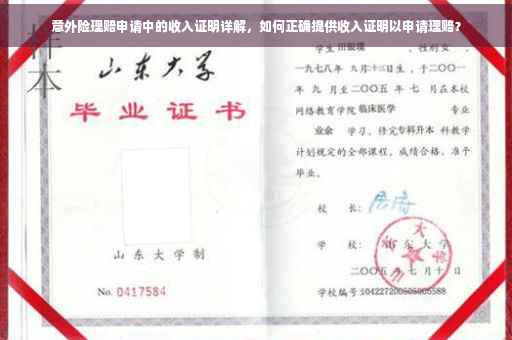 意外险理赔申请中的收入证明详解，如何正确提供收入证明以申请理赔？
样本
山东大学
毕业证书
山东大学制
No. 0417584
学生
性别女，
一九七八年 九月十三日生，于二〇〇一
年 九 月至二〇〇五 年 七 月在本校
网络教育学院 临床医学 专业
业余 学习，修完专科升本 科教学
计划规定的全部课程，成绩合格，准予
毕业。
校 长：
学 校：山东大学
二〇〇五年 七 月十 日
学校编号: